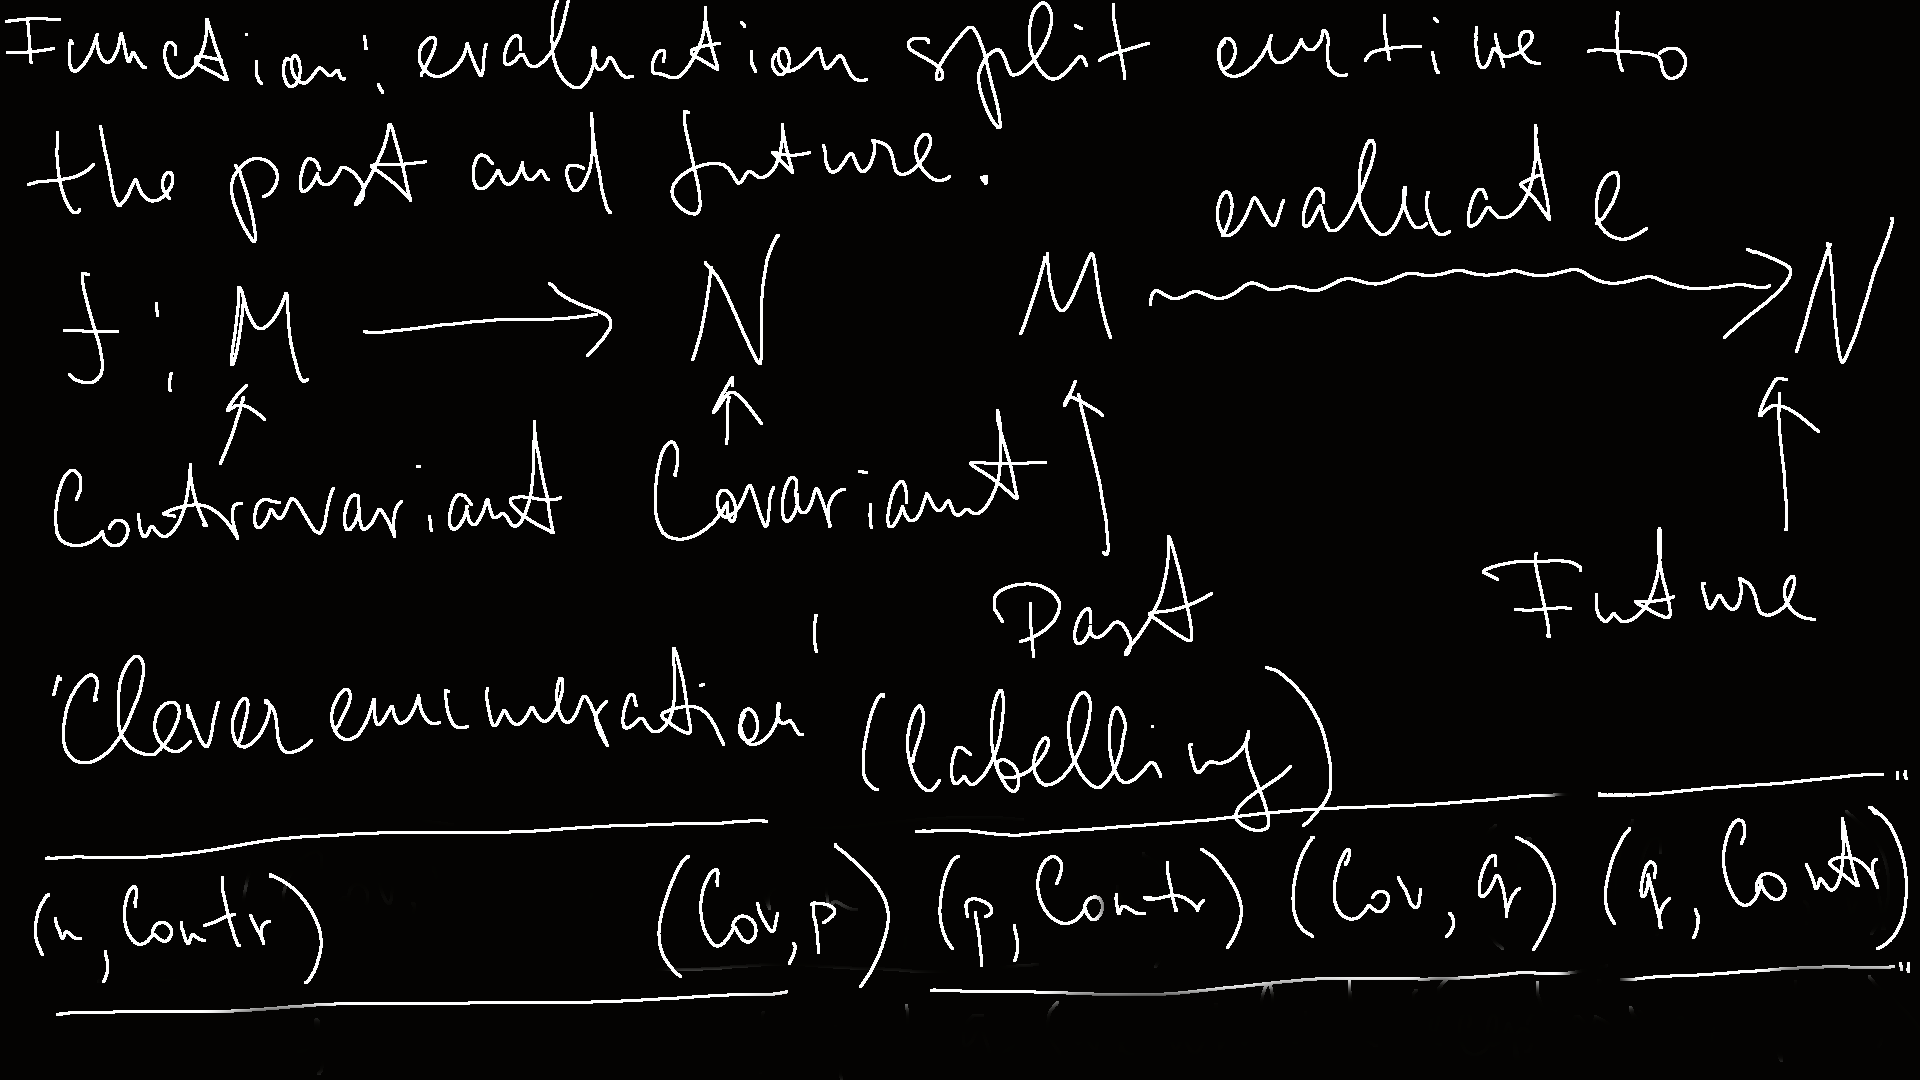 Function: evaluation split entire to
the past and future.
evaluate
f: M → N M ⇝ N
Contravariant Covariant
Past Future
'Clever enumeration' (labelling)
(n, Contr) (Cov, p) (p, Contr) (Cov, q) (q, Contr)